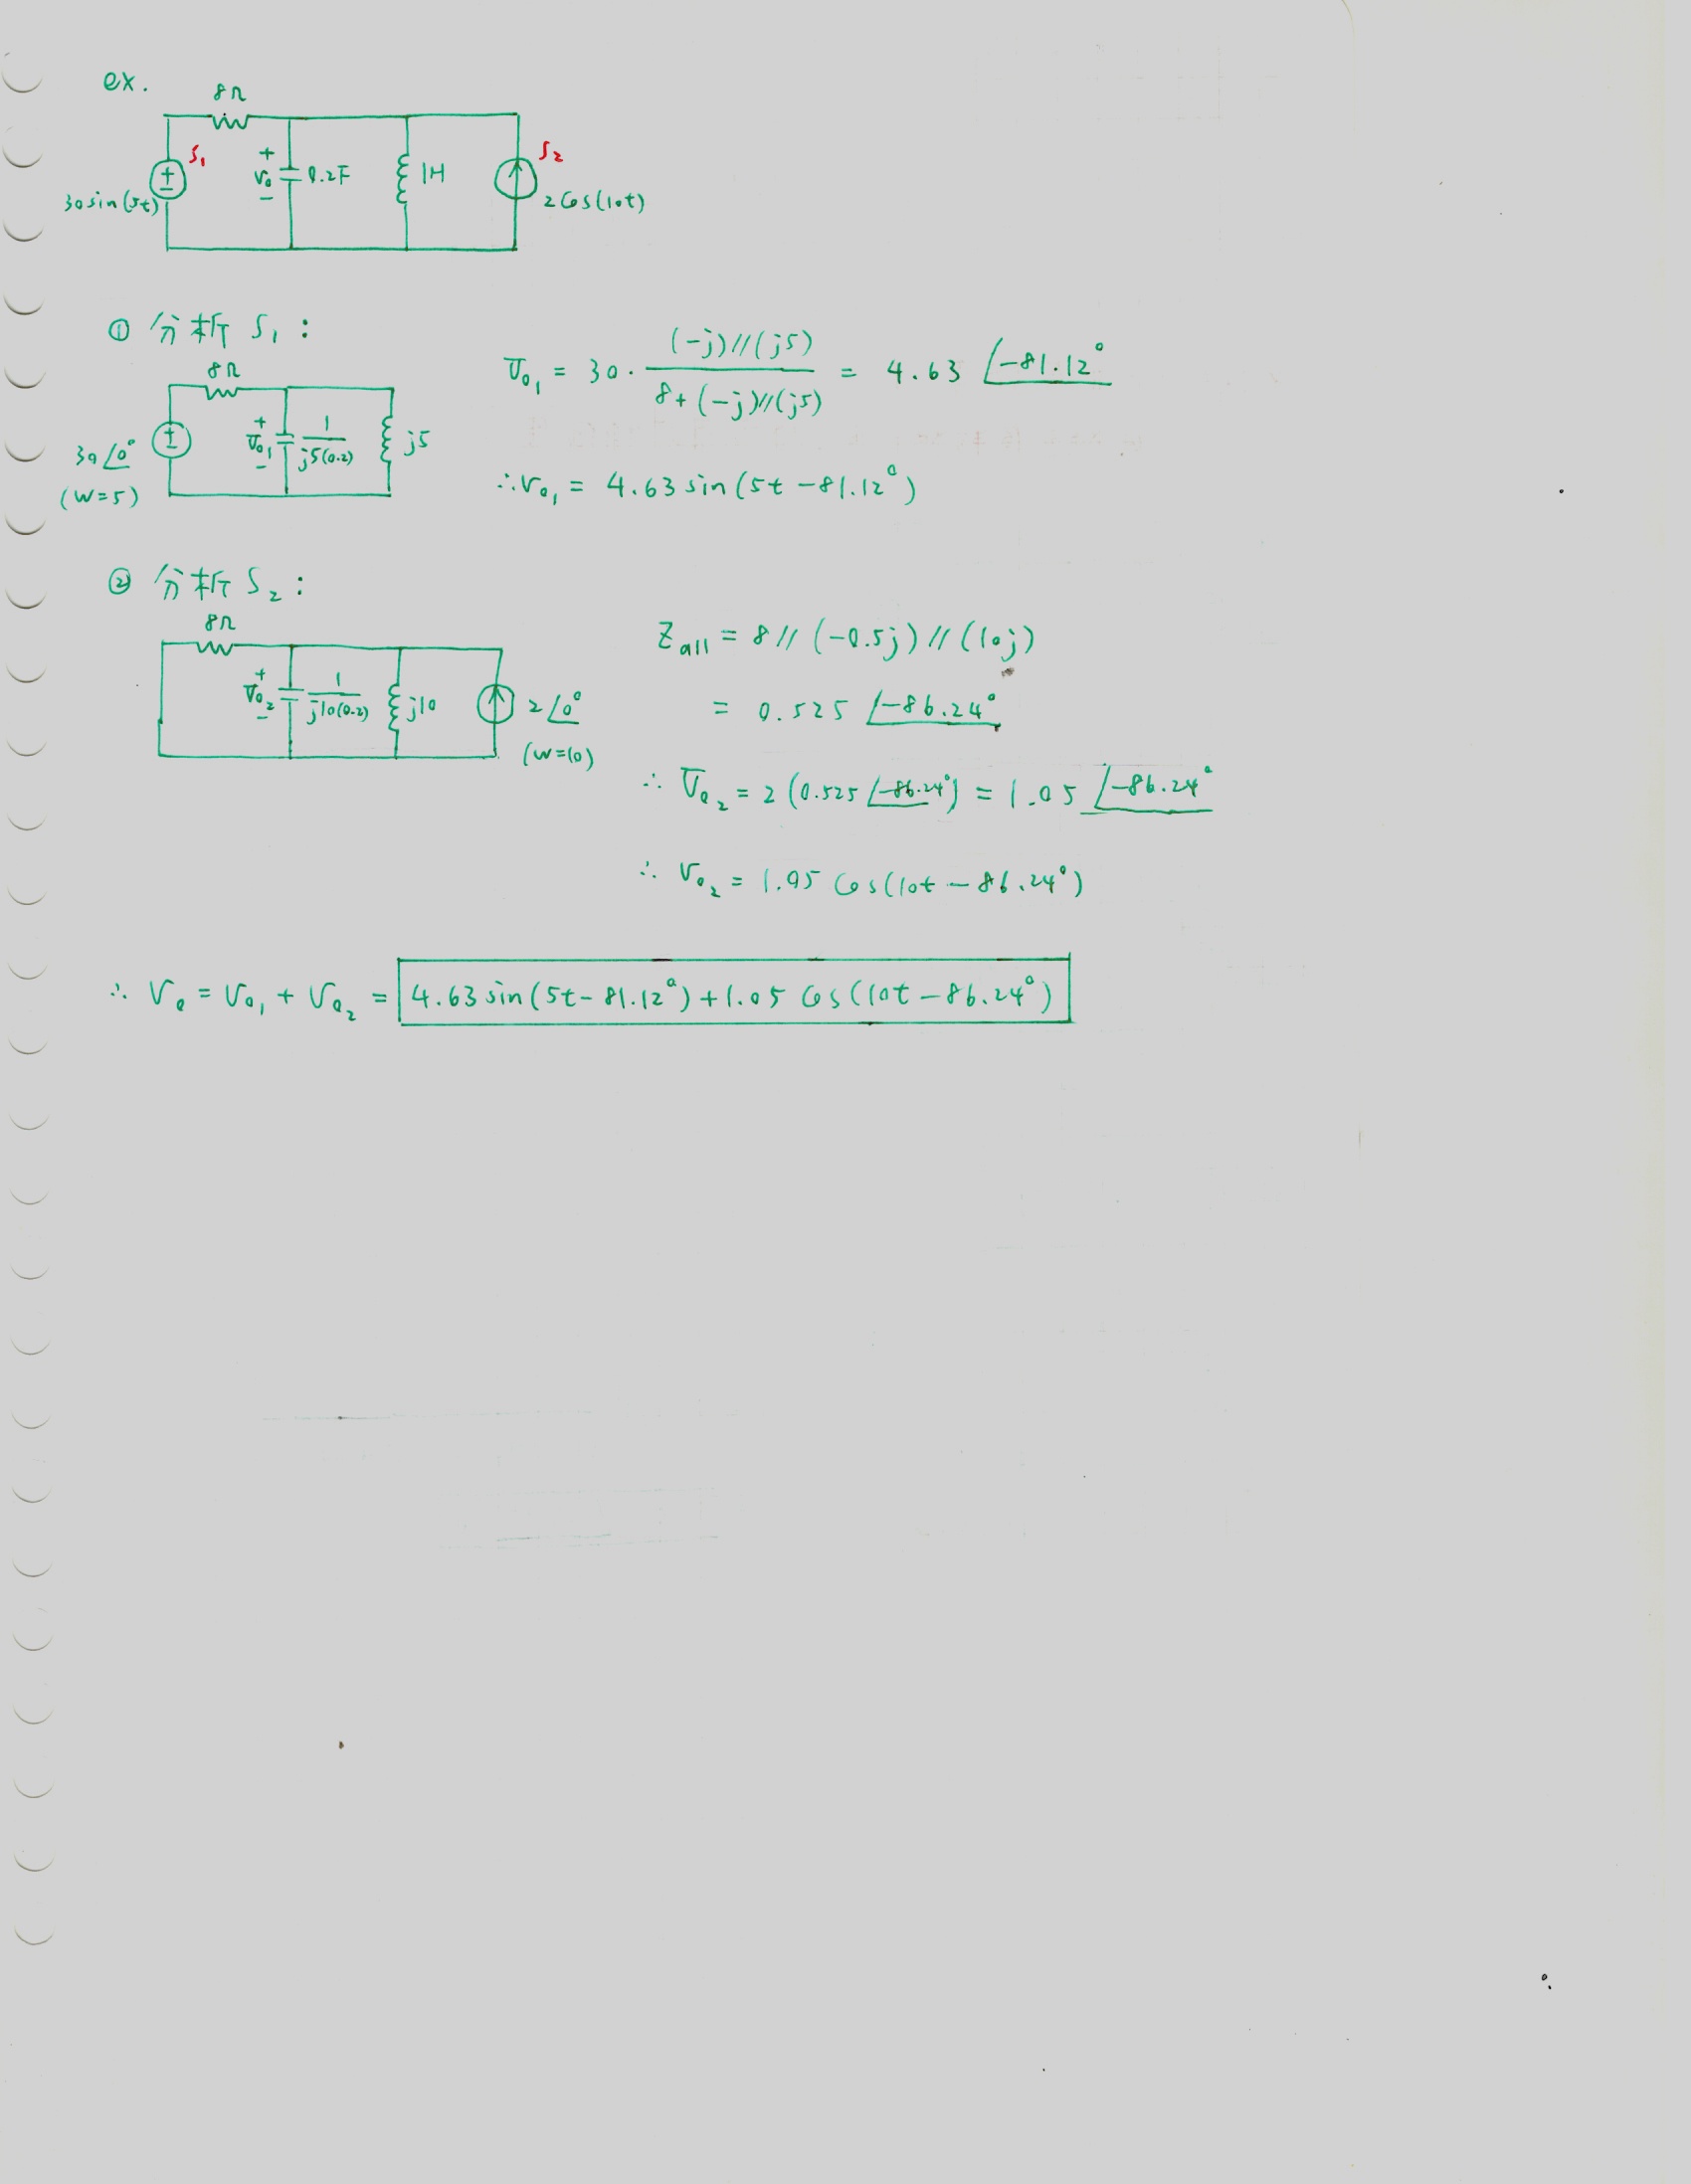 ex.
8Ω
S₁
+
v₀
−
0.2F
1H
S₂
30sin(5t)
2cos(10t)
① 分析 S₁ :
8Ω
30∠0°
(W=5)
+
V̄₀₁
−
1/(j5(0.2))
j5
V̄₀₁ = 30 · ((-j)//(j5))/(8+(-j)//(j5)) = 4.63 ∠-81.12°
∴ v₀₁ = 4.63 sin(5t -81.12°)
② 分析 S₂ :
8Ω
+
V̄₀₂
−
1/(j10(0.2))
j10
2∠0°
(W=10)
Z all = 8 // (-0.5j) // (10j)
= 0.525 ∠-86.24°
∴ V̄₀₂ = 2 (0.525 ∠-86.24°) = 1.05 ∠-86.24°
∴ v₀₂ = 1.05 cos(10t - 86.24°)
∴ v₀ = v₀₁ + v₀₂ = 4.63 sin(5t - 81.12°) + 1.05 cos(10t - 86.24°)